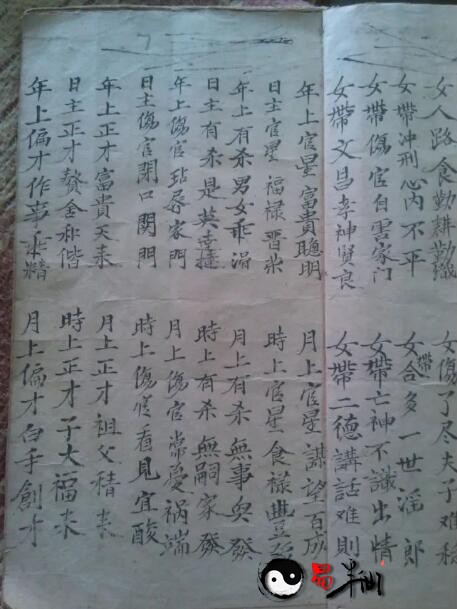 女人路食勤耕勤織 女傷了尽夫子难
女帶冲刑心内不平 女合帶多一世滛郎
女帶傷官自害家门 女帶亡神不識出情
女帶文昌孝神賢良 女帶二德講話难則
年上官星富貴聰明 月上官星謀望百成
日主官星福禄晋 時上官星食禄豊
年上有杀男女乖 月上有杀無事㒷發
日主有杀是英 時上有杀無嗣家發
年上傷官玷辱家門 月上傷官常憂祸端
日主傷官開口閗門 時上傷官看見宜酸
年上正才富貴天来 月上正才祖父積来
日主正才贅舍和偕 時上正才子大福来
年上偏才作事非精 月上偏才白手創才
易半仙